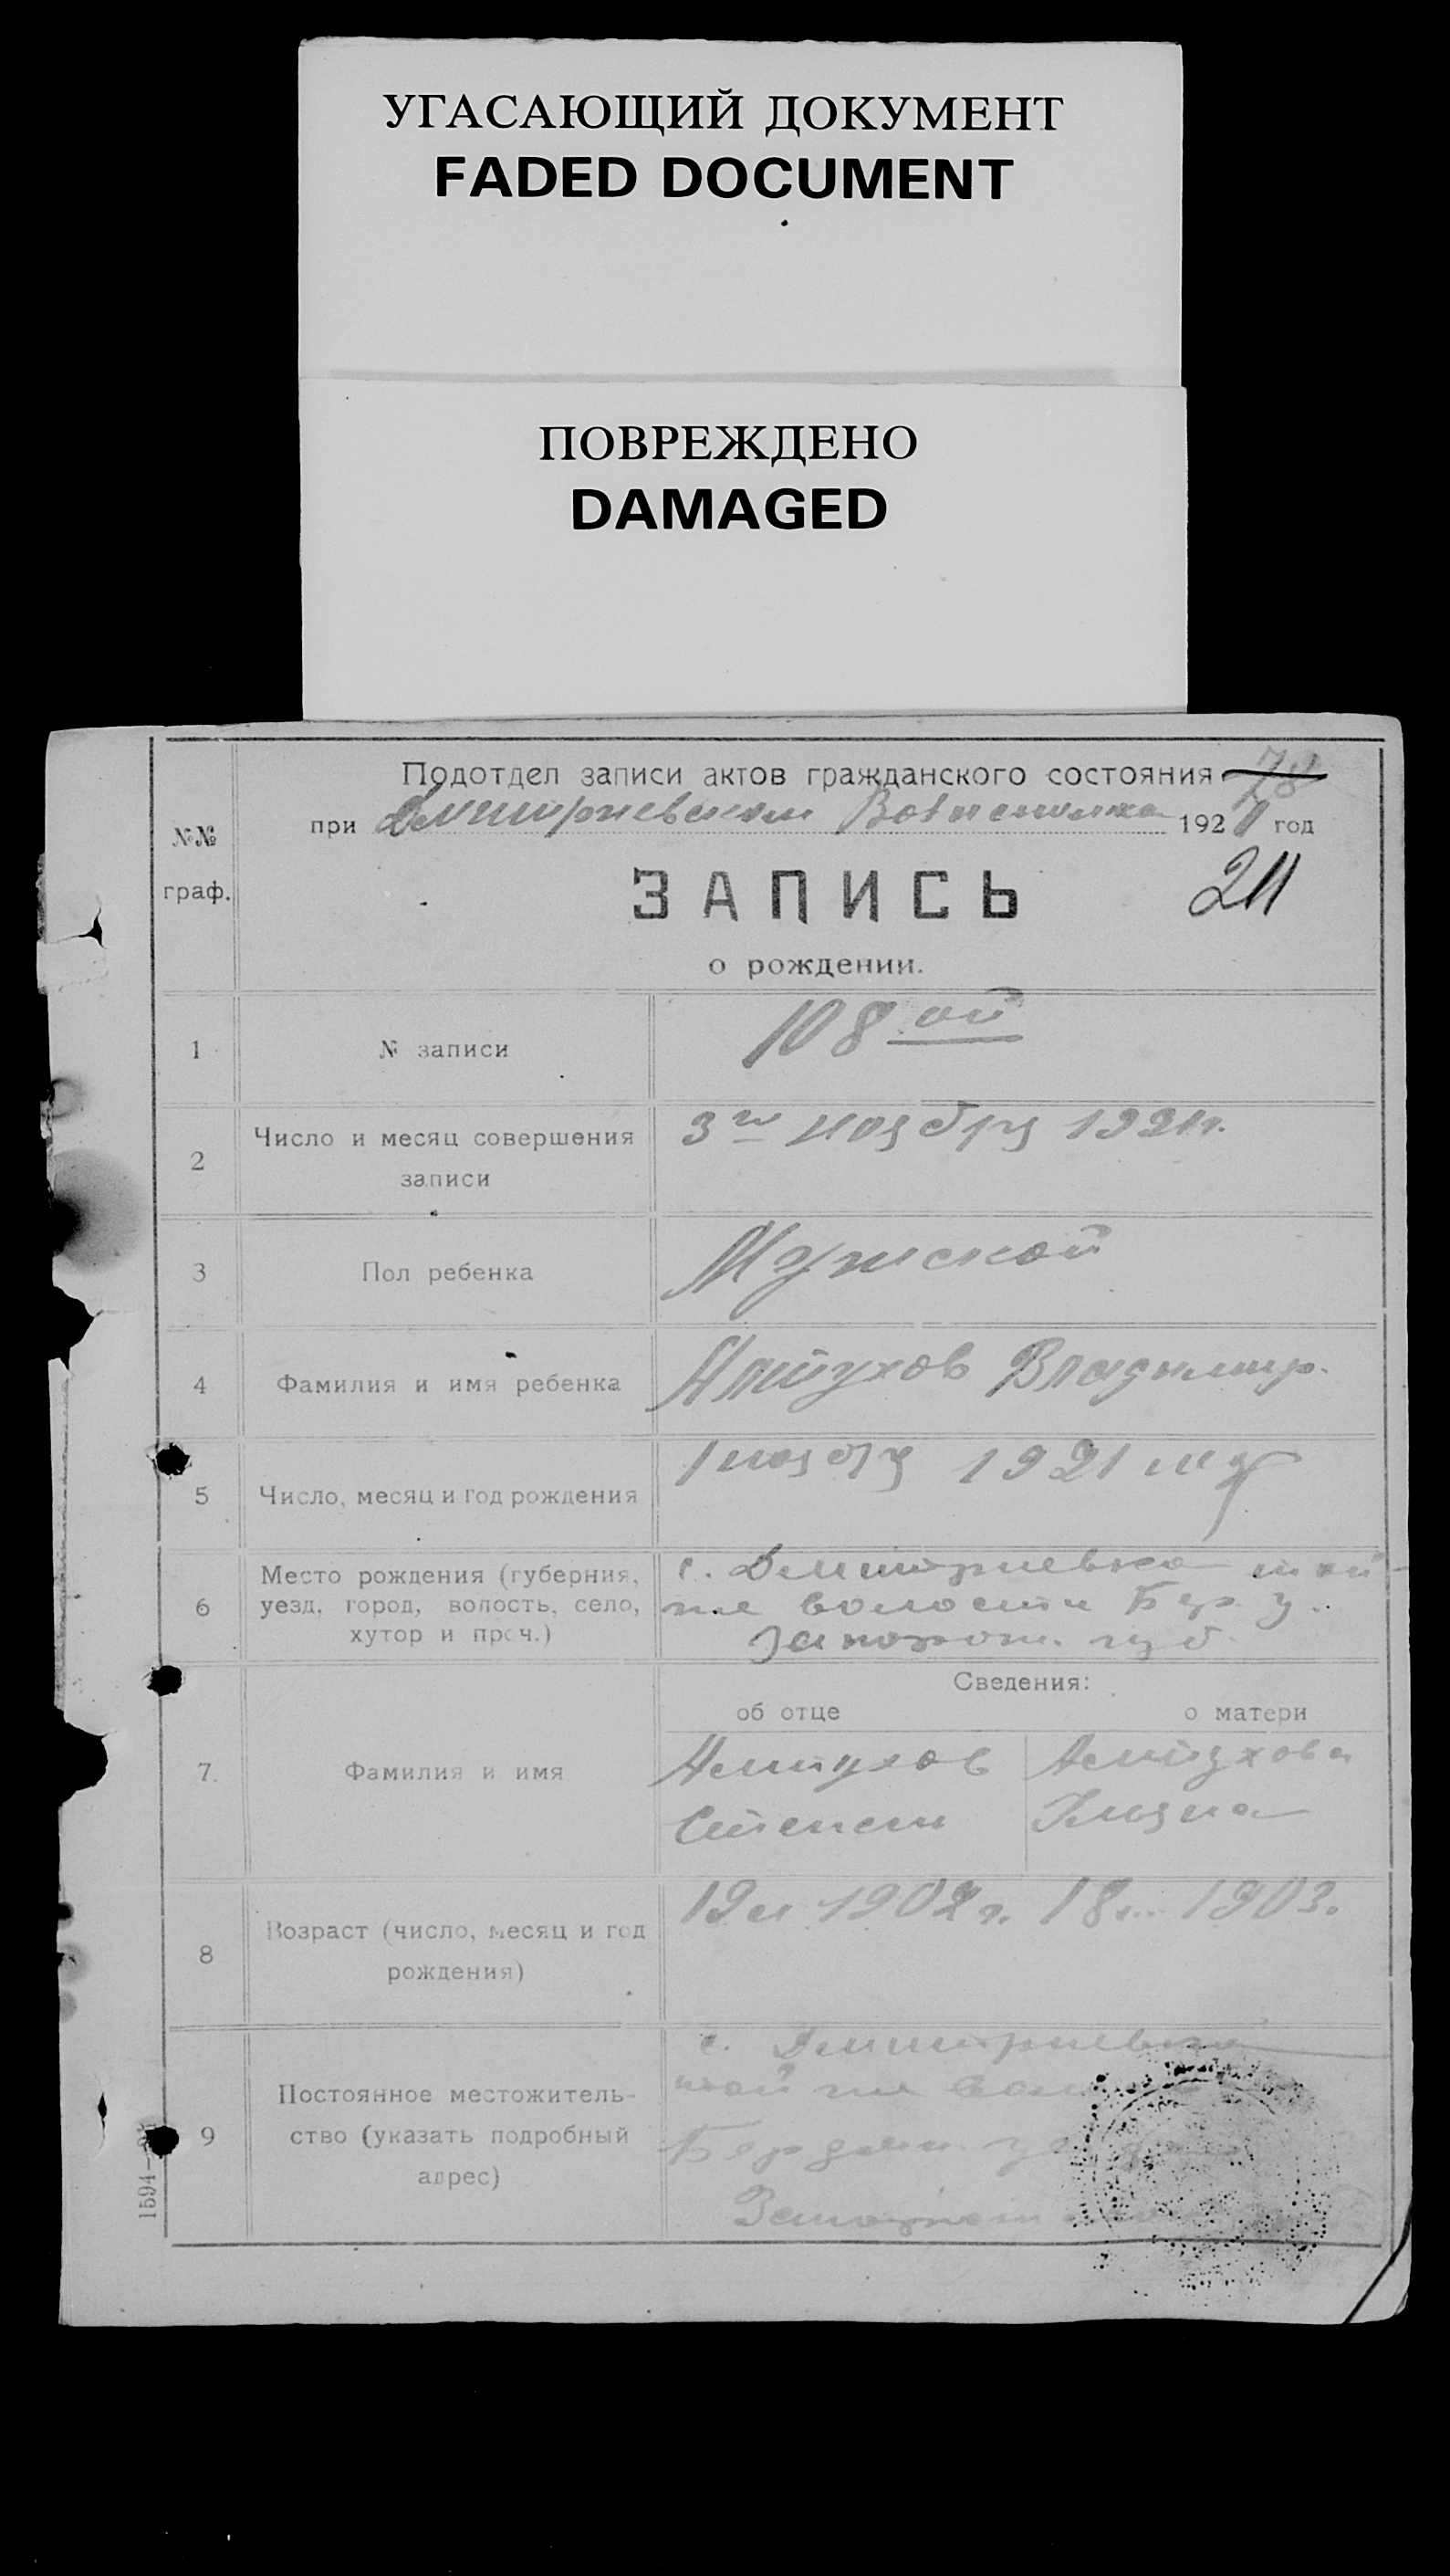 УГАСАЮЩИЙ ДОКУМЕНТ
FADED DOCUMENT
ПОВРЕЖДЕНО
DAMAGED
Подотдел записи актов гражданского состояния 78
при Дмитриевском 1921 год
№№
граф.
ЗАПИСЬ
211
о рождении.
1 № записи 108 ой
2 Число и месяц совершения записи 3го ноября 1921г.
3 Пол ребенка Мужской
4 Фамилия и имя ребенка Владимир.
5 Число, месяц и год рождения 1 ноября 1921
6 Место рождения (губерния, уезд, город, волость, село, хутор и проч.) с. Дмитриевка той-
же волости Бер. у.
Запорож. губ.
Сведения:
об отце о матери
7. Фамилия и имя
Степан
8 Возраст (число, месяц и год рождения) 19 л 1902 г. 18 1903.
9 Постоянное местожительство (указать подробный адрес) с. Дмитриевка
той же вол
Бердян.
1594—